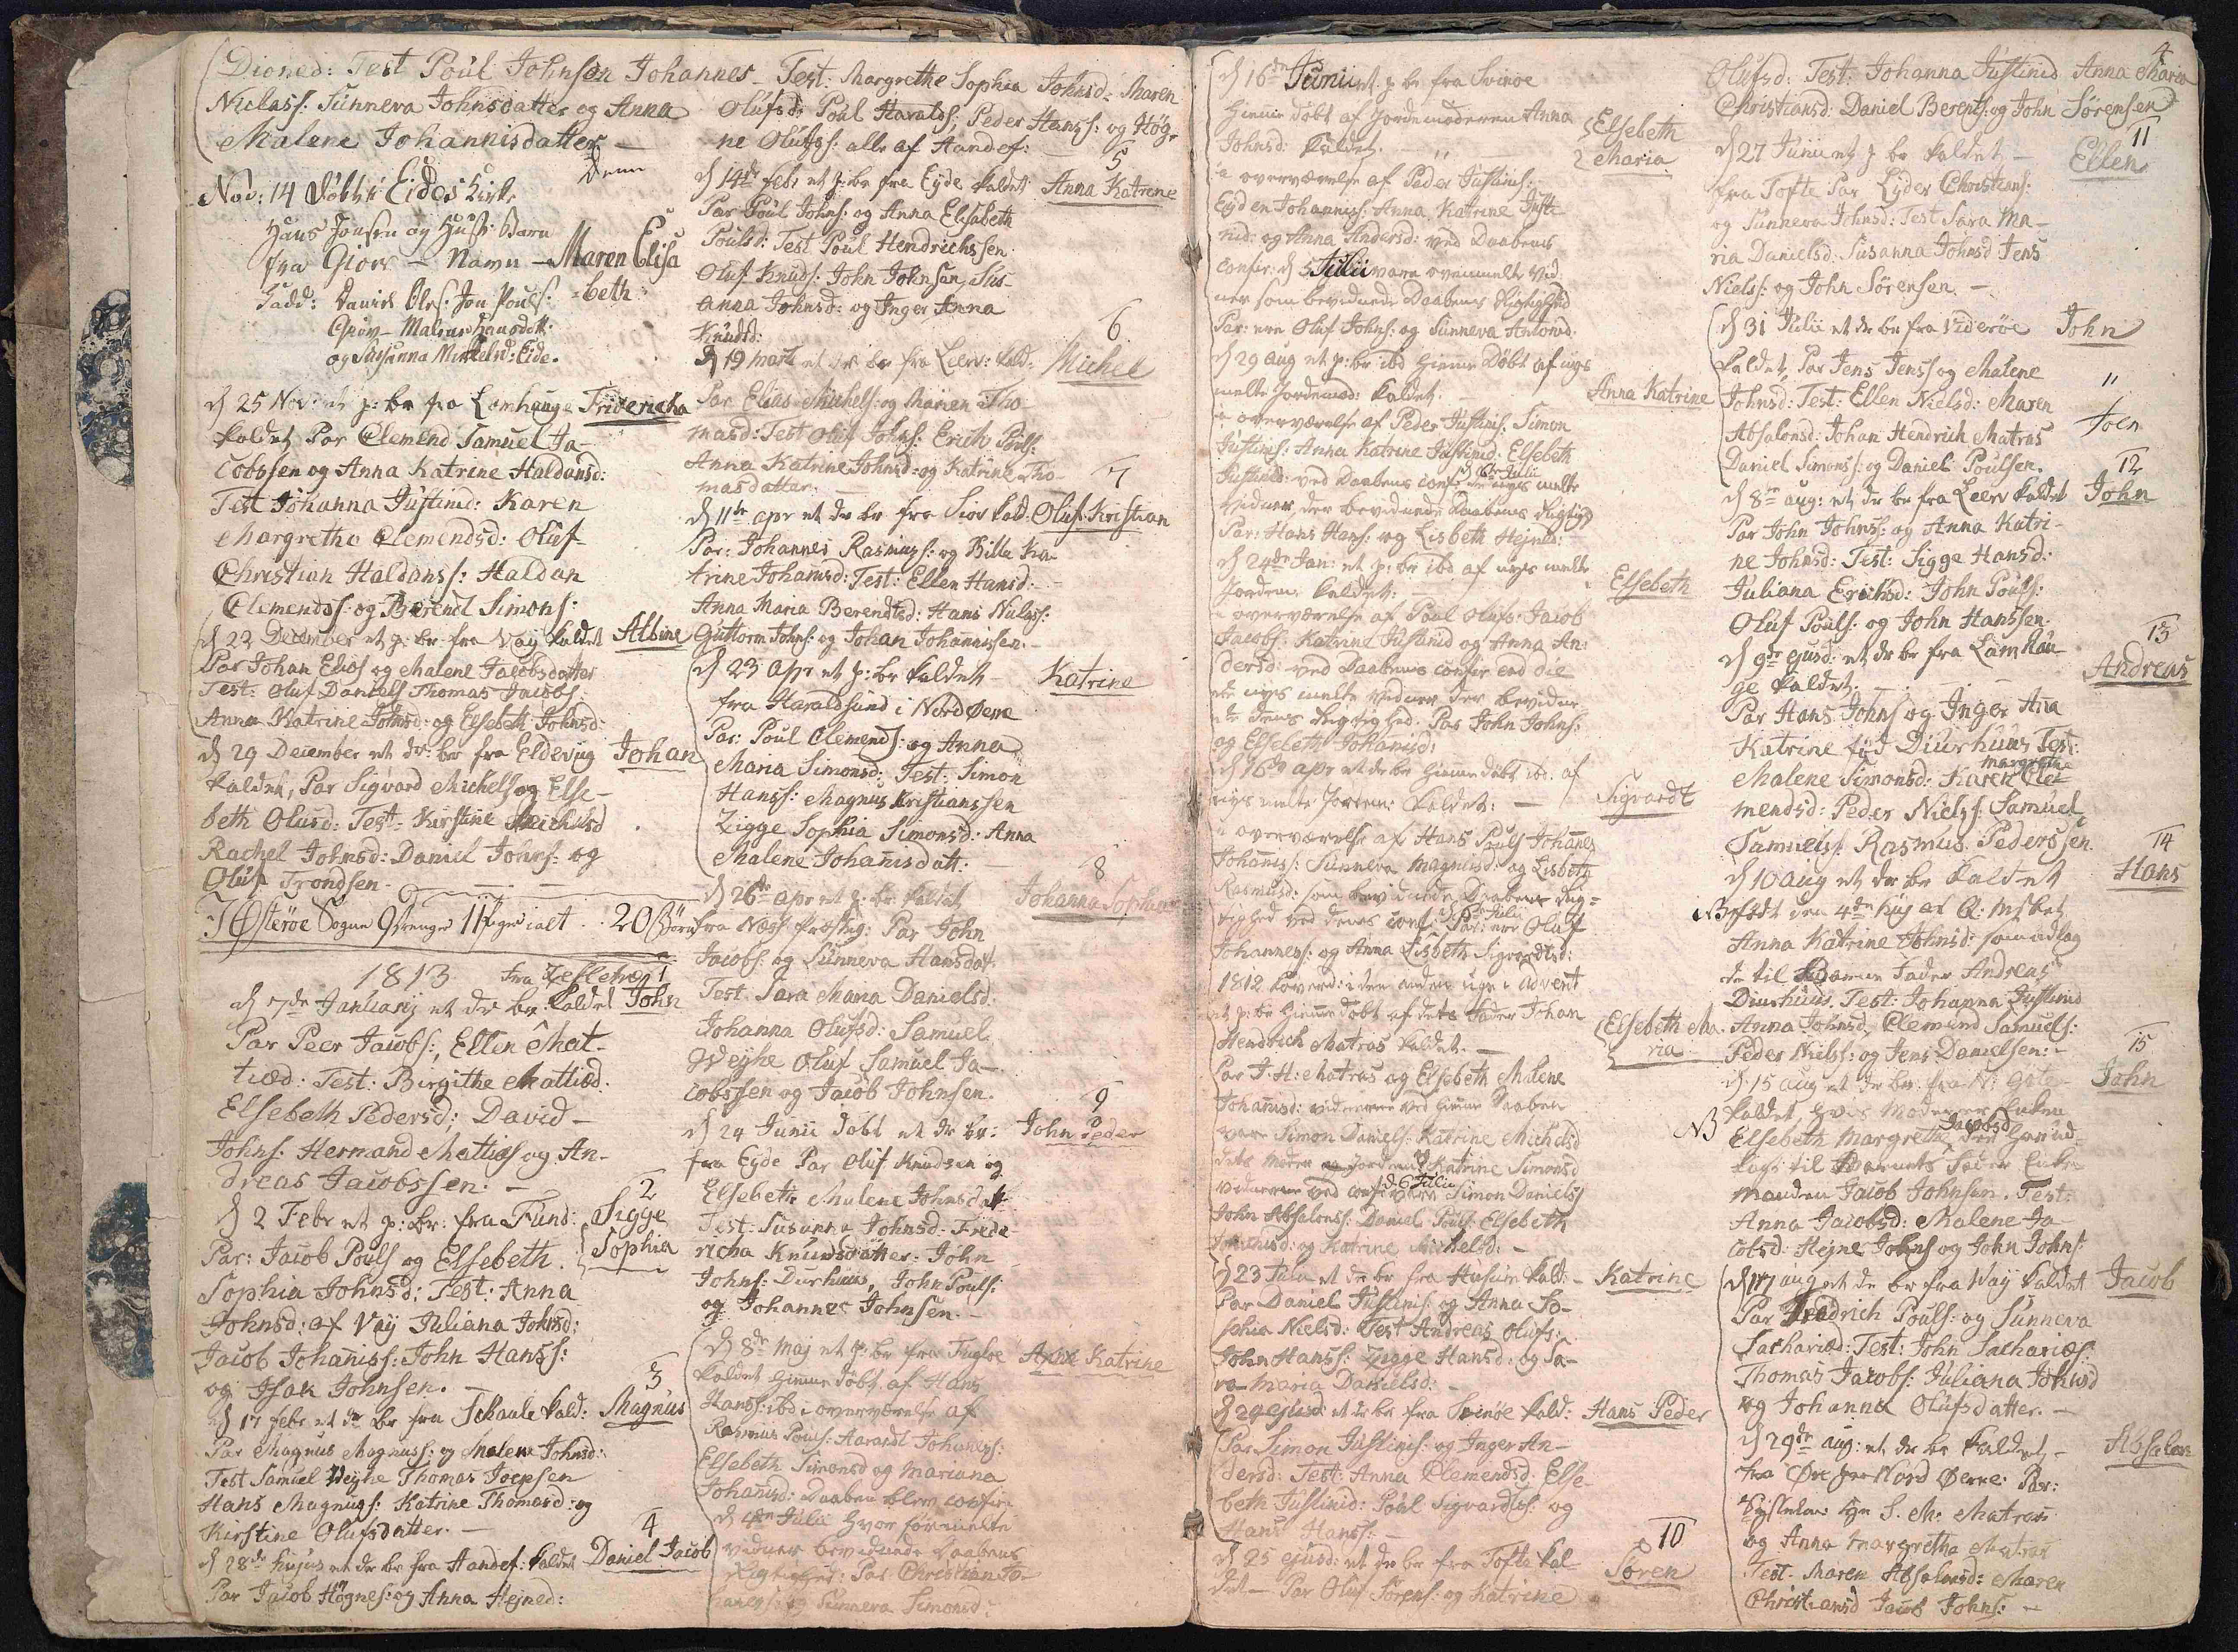 Dioned: Test Poul Johnsen Johannes
Niclass: Sunneva Johnsdatter og Anna
Malene Johannisdatter —
Nov: 14 Døbt i Eides Kirke
Hans Jonsen og Hust: Barn
fra Giov — Navn — Maren Elisa
=beth
Fadd: Daniel Ols: Jon Pouls:
Giov — Malene Hansdatt:
og Susanna Mickelsd: Eide.
d 25 Nov: et p: br fra Lamhauge Fridericha
kaldet Par Clemend Samuel Ja-
cobssen og Anna Katrine Haldansd:
Test Johanna Justinid: Karen
Margrethe Clemendsd: Oluf
Christian Haldanss: Haldan
Clemendss: og Berend Simons:
d 22 December et p: br fra Vaÿ kaldet Albine
Par Johan Elias og Malene Jacobsdatter
Test: Oluf Daniels Thomas Jacobs:
Anna Katrine Johnsd: og Elsebeth Johnsd:
d 29 December et dr: br fra Eldevig Johan
kaldet, Par Sigvard Michels og Else-
beth Olusd: Test: Kirstine Michelsd
Rachel Johnsd: Daniel Johns: og
Oluf Trondsen.
I Østerøe Sogne 9 Drenge 11 Piger ialt 20 Børn
1813 fra Zellefræ 1
d 7de Januarij et dr br kaldet John
Par Peer Jacobs:, Ellen Mat-
tiæd: Test: Birgithe Mattiæd.
Elsebeth Pedersd: David
Johns: Hermand Mattias og An-
dreas Jacobssen. —
2
d 2 Febr et p: br: fra Fund: Sigge
Sophia
Par: Jacob Pouls og Elsebeth
Sophia Johnsd: Test: Anna
Johnsd: af Vaÿ Juliana Johnsd:
Jacob Johaniss: John Hanss:
og Isak Johnsen.
3
d 17 febr et dr br fra Skaale kald: Magnus
Par Magnus Magnuss: og Malene Johnsd:
Test Samuel Weyhe Thomas Joensen
Hans Magnuss: Katrine Thomasd: og
Kirstine Olufsdatter. —
4
d 28de hujus et dr br fra Handef: kaldet Daniel Jacob
Par Jacob Høgnes: og Anna Hejned:
Test: Margrethe Sophia Johnsd: Maren
Olufsd: Poul Haralds; Peder Hanss: og Høg-
ne Olufss: alle af Handef: —
5
d 14de febr et p: br fra Eyde kaldet Anna Katrine
Par Poul Johns: og Anna Elsabeth
Poulsd: Test Poul Hendrichssen
Oluf Knuds: John Johnsen, Sus-
anna Johnsd: og Inger Anna
Knudsd:
6
d 19 marts et dr br fra Leerv: kald: Michel
Par Elias Michels: og Maren Tho-
masd: Test Oluf Johns: Erich Pouls:
Anna Katrine Johnsd: og Katrine Tho-
masdatter.
7
d 11te apr et dr br fra Siov kald: Oluf Kristian
Par: Johannes Rasmuss: og Billa Ka-
trine Johannsd: Test: Ellen Hansd:
Anna Maria Berendtsd: Hans Nielss:
Guttorm Johns: og Johan Johannissen. —
d 23 apr et p: br kaldet — Katrine
fra Haraldsund i Nord Øerne
Par: Poul Clemends: og Anna
Maria Simonsd: Test: Simon
Hanss: Magnus Kristianssen
Zigge Sophia Simonsd: Anna
Malene Johannisdatt: —
8
d 26de apr et p: br kaldet Johanna Sophia
fra Næss: Par John
Jacobs: og Sunneva Hansdat:
Test. Sara Maria Danielsd:
Johanna Olufsd: Samuel
Weyhe Oluf Samuel Ja-
cobssen og Jacob Johnsen.
9
d 24 Junii døbt et dr br: John Peder
fra Eyde Par Oluf Knudsen og
Elsebeth Malene Johnsdat
Test: Susanna Johnsd: Frede-
richa Knudsdatter: John
Johns: Durhuus, John Pouls:
og Johannes Johnsen. —
d 8de Maj et p: br fra Fugloe Anne Katrine
kaldet hjemme døbt af Hans
Hanss: ibd i overværelse af
Rasmus Pouls: Johaness:
Elsebeth Simonsd og Mariana
Johannsd: Daaben blev confir:
d 4de Julii hvor før melte
vidner bevidnede Daabens
Rigtighed: Par Christian Jo-
haness: og Sunneva Simonsd:
d 16de Junii et p br fra Svinoe
hjemme døbt af Jordemoderen Anna Elsebeth
Johnsd: kaldet. — Maria
i overværelse af Peder Justinis:
Eyden Johanniss: Anna Katrine Justi-
nid: og Anna Andersd: ved Daabens
confir: d 5 Julii vare ovenmelte vid-
ner som bevidnede Daabens Rigtighed
Par: ere Oluf Johns: og Sunneva Antonid:
d 29 aug et p: br ibd hjemme Døbt af nys
melte Jordemod: kaldet: — Anna Katrine
i overværelse af Peder Justinis: Simon
Justinis: Anna Katrine Justinid: Elsebeth
Justinid: ved Daabens conf: d 6te Julii de nys melte
vidner der bevidnede Daabens Rigtigh
Par: Hans Hans: og Lisbeth Hejned:
d 24de Jan: et p: br ibd af nys melte
Jordem: kaldet: — Elsebeth
i overværelse af Poul Olufs: Jacob
Jacobs: Katrine Justinid og Anna An-
dersd: ved Daabens confir
de nys melte vidner der bevidne-
de dens Rigtighed. Par John Johns:
og Elsebeth Johannisd:
d 16de apr et dr br hjemme døbt ibd: af
nys melte Jordem: kaldet: — Sigvardt
i overværelse af Hans Pouls Johanes
Johannis: Sunneva Magnusd: og Lisbeth
Rasmusd: som bevidnede Daabens Rig-
tighed ved dens conf: Par: ere Oluf
Johannes: og Anna Lisbeth Sigvardtsd:
1812 i den anden uge i advent
et p: br hjemme døbt af dets Fader Johan Elsebeth Ma-
Hendrich Matras kaldet. — ria
Par J: H: Matras og Elsebeth Malene
Johannisd: vidnerne ved hjemme Daaben
vare Simon Daniels: Katrine Michelsd
dets moder og Katrine Simonsd
vidnerne ved conf: d 6 Julii vare Simon Daniels
John Absalonss: Daniel Pouls: Elsebeth
Johannisd: og Katrine Michelsd: —
d 23 Julii et dr br fra Husum kald: — Katrine
Par Daniel Justinis: og Anna So-
phia Nielsd: Test Andreas Olufs:
John Hanss: Zigge Hansd: og Sa-
ra Maria Danielsd: —
d 29 ejusd: et dr br fra Svinoe kald: Hans Peder
Par Simon Justinis: og Inger An-
dersd: Test: Anna Clemendsd: Else-
beth Justinid: Poul Sigvardtss: og
Hans Hanss: —
10
d 25 ejusd: et dr br fra Tofte kal- Søren
det — Par Oluf Sørens: og Katrine
4
Olufsd: Test: Johanna Justinid Anna Maria
Christiansd: Daniel Berents: og John Sørensen
11
d 27 Junii et p br kaldet — Ellen
fra Tofte Par Lyder Christians:
og Sunneva Johnsd: Test Sara Ma-
ria Danielsd: Susanna Johnsd Jens
Niels: og John Sørensen. —
d 31 Julii et dr br fra Viderøe John
kaldet, Par Jens Jenss og Malene
Johnsd: Test: Ellen Nielsd: Maren
Absalonsd: Johan Hendrich Matras Joen
Daniel Simonss: og Daniel Poulsen.
12
d 8de aug: et dr br fra Leerv kaldet John
Par John Johnss: og Anna Katri-
ne Johnsd: Test: Sigge Hansd:
Juliana Eriksd: John Pouls:
Oluf Pouls: og John Hanssen.
13
d 9de ejusd: et dr br fra Lamhau-
ge kaldet, — Andreas
Par Hans Johns og Inger Aña
Katrine fød Diurhuus Test:
Malene Simonsd: Karen Margrethe Cle-
mendsd: Peder Nielss: Samuel
Samuels: Rasmus Pederssen
14
d 10 aug et dr br kaldet Hans
NB født den 4de huj af Q: Msket
Anna Katrine Johnsd: som udlag-
de til Barne Fader Andreas
Diurhuus. Test: Johanna Justinid
Anna Johnsd, Clemend Samuels:
Peder Nielss: og Jens Danielsen: —
15
d. 15 aug et dr br. fra N: Gøte- John
kaldet, hvis Moder er Enken
NB Elsebeth Margrethe Jacobsd
lagt til Barnets Fader Enke-
manden Jacob Johnsen. Test:
Anna Jacobsd: Malene Ja-
cobsd: Hejne Johns og John Johns:
d 17 aug et dr br fra Vaÿ kaldet Jacob
Par Fredrich Pouls: og Sunneva
Sachariæd: Test: John Sachariæs:
Thomas Jacobs: Juliana Johnsd
og Johanna Olufsdatter. —
d 29de aug: et dr br kaldet, — Absalon
fra Øre Nord Øerne. Par:
S. M: Matras
og Anna Margretha Matras
Test. Maren Absalonsd: Maren
Christiansd Jacob Johns: —